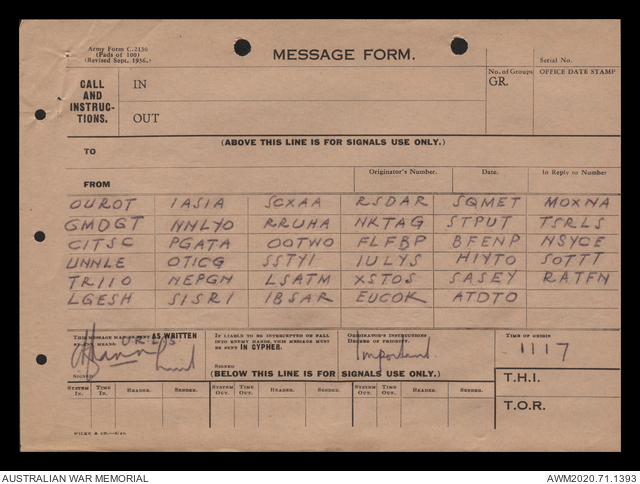 Army Form C.2136
(Pads of 100)
(Revised Sept. 1936.)
MESSAGE FORM.
Serial No.
CALL AND INSTRUC-TIONS.
IN
OUT
No. of Groups
GR.
OFFICE DATE STAMP
(ABOVE THIS LINE IS FOR SIGNALS USE ONLY.)
TO
FROM
Originator's Number.
Date.
In Reply to Number.
OUROT IASIA SCXAA RSDAR SQMET MOXNA
GMDGT NNLYO RRUHA NKTAG STPUT TSRLS
CITSC PGATA OOTWO FLFBP BFENP NSYCE
UNNLE OTICG SSTYI IULYS HIYTO SOTTT
TRIIO NEPGN LSATM XSTOS SASEY RATFN
LGESH SISRI IBSAR EUCOK ATDTO
THIS MESSAGE MAY BE SENT AS WRITTEN
BY ANY MEANS.
SIGNED
IF LIABLE TO BE INTERCEPTED OR FALL
INTO ENEMY HANDS, THIS MESSAGE MUST
BE SENT IN CIPHER.
SIGNED
ORIGINATOR'S INSTRUCTIONS
DEGREE OF PRIORITY.
Important
TIME OF ORIGIN
1117
(BELOW THIS LINE IS FOR SIGNALS USE ONLY.)
T.H.I.
T.O.R.
SYSTEM IN. TIME IN. READER. SENDER. SYSTEM OUT. TIME OUT. READER. SENDER. SYSTEM OUT. TIME OUT. READER. SENDER.
AUSTRALIAN WAR MEMORIAL
AWM2020.71.1393